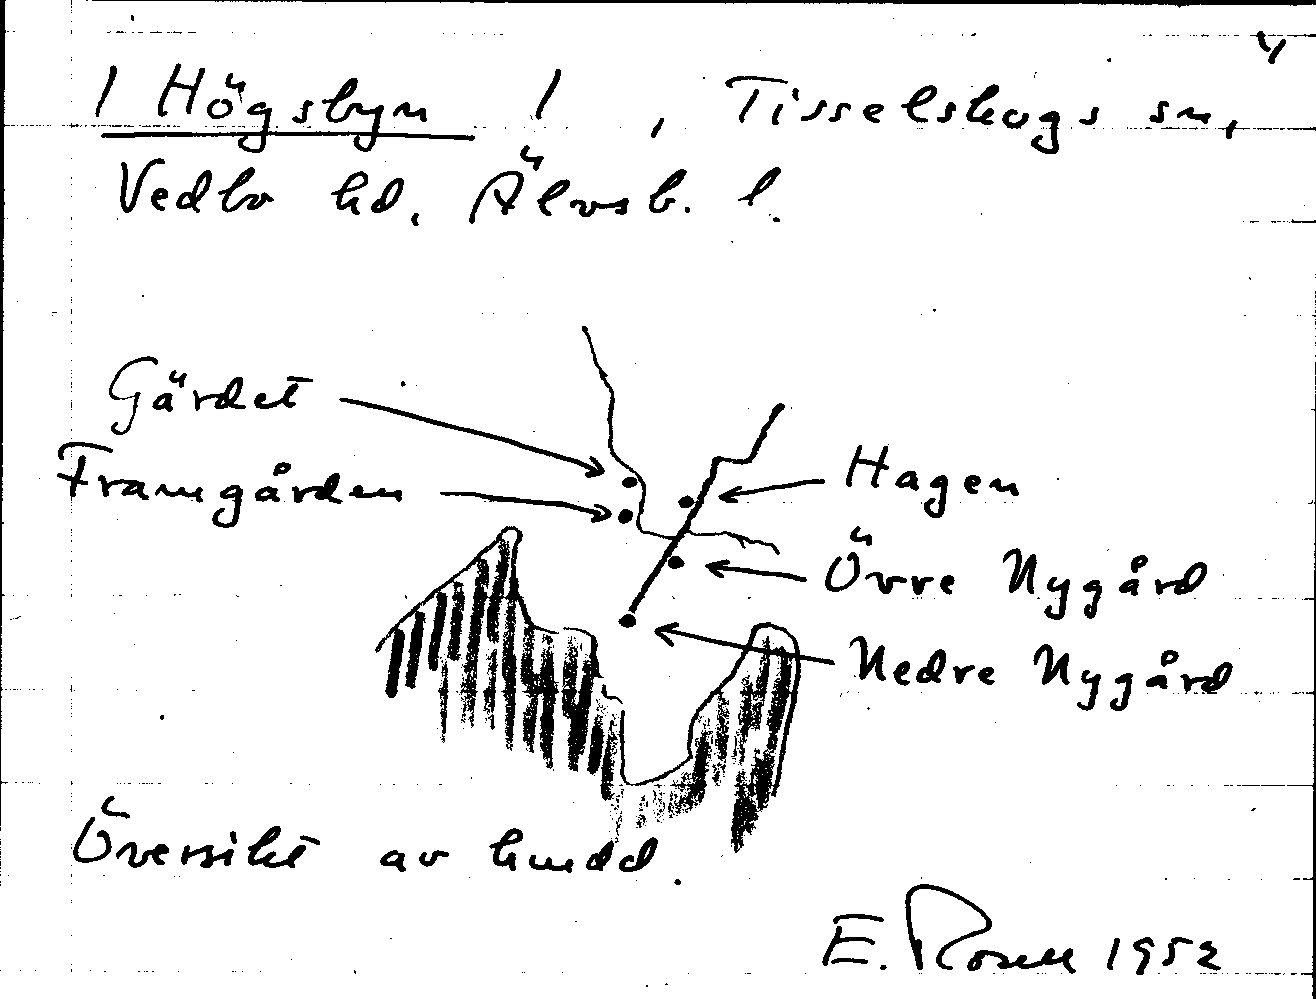 4
/ Högsbyn /, Tisselskogs sn,
Vedbo hd. Älvsb. l.
Gärdet
Framgården
Hagen
Övre Nygård
Nedre Nygård
Översikt av
E. Rosell 1952